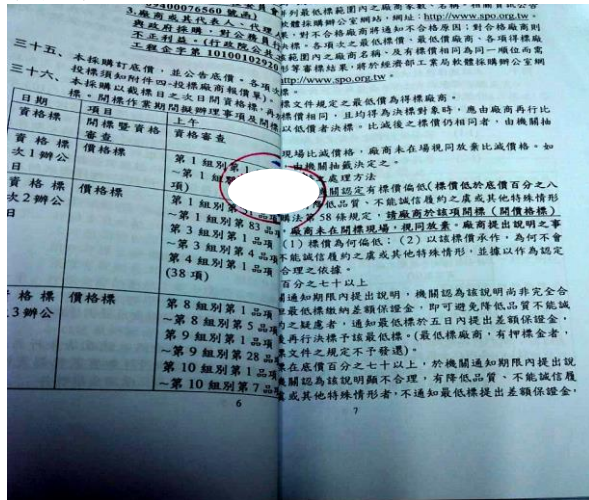 09400076560 號函)
3.廠商或其代表人、代理人
與政府採購,對公務員行
不正利益。(行政院公共
工程企字第 10100102920
三十五、本採購訂底價,並公告底價。各項次
投標須知附件四-投標廠商報價單)。
三十六、本採購以截標日之次日開資格標。再
標。開標作業期間擬辦理事項及開標
日期 項目 上午
資格標 開標暨資格審查 資格審查
資格標
次1辦公
日
價格標
第 1 組別第 1
~第 1 組
項)
資格標
次2辦公
日
價格標
第 1 組別 51 品項
~第 1 組別 83 品項
第 3 組別第 1 品項
~第 3 組別第 4 品項
第 4 組別第 1 品項
(38 項)
資格標
3辦公
價格標
第 8 組別第 1 品項
~第 8 組別第 5 品項
第 9 組別第 1 品項
~第 9 組別第 28 品
第 10 組別第 1 品項
~第 10 組別第 7 品
6
列最低標範圍內之廠商家數、名稱,相關資訊公告
軟體採購辦公室網站,網址:http://www.spo.org.tw。
,對不合格廠商將通知不合格原因;對合格廠商則
決標。各項次之最低標價、最低標廠商、各項得標廠
範圍內之廠商名稱、及有標價相同為同一順位而需
形等審標結果,將於經濟部工業局軟體採購辦公室網
http://www.spo.org.tw。
標。
標文件規定之最低價為得標廠商。
標價相同,且均得為決標對象時,應由廠商再行比
以低價者決標。比減後之標價仍相同者,由機關抽
現場比減價格,廠商未在場視同放棄比減價格。如
,由機關抽籤決定之。
之處理方法
機關認定有標價偏低(標價低於底價百分之八
降低品質、不能誠信履約之虞或其他特殊情形
購法第 58 條規定,請廠商於該項開標(開價格標)
。廠商未在開標現場,視同放棄。廠商提出說明之事
(1)標價為何偏低;(2)以該標價承作,為何不會
不能誠信履約之虞或其他特殊情形,並據以作為認定
合理之依據。
百分之七十以上
關通知期限內提出說明,機關認為該說明尚非完全合
知最低標繳納差額保證金,即可避免降低品質不能誠
之疑慮者,通知最低標於五日內提出差額保證金,
再行決標予該最低標。(最低標廠商,有押標金者,
標文件之規定不予發還)。
在底價百分之七十以上,於機關通知期限內提出說
機關認為該說明顯不合理,有降低品質、不能誠信履
虞或其他特殊情形者,不通知最低標提出差額保證金,
7